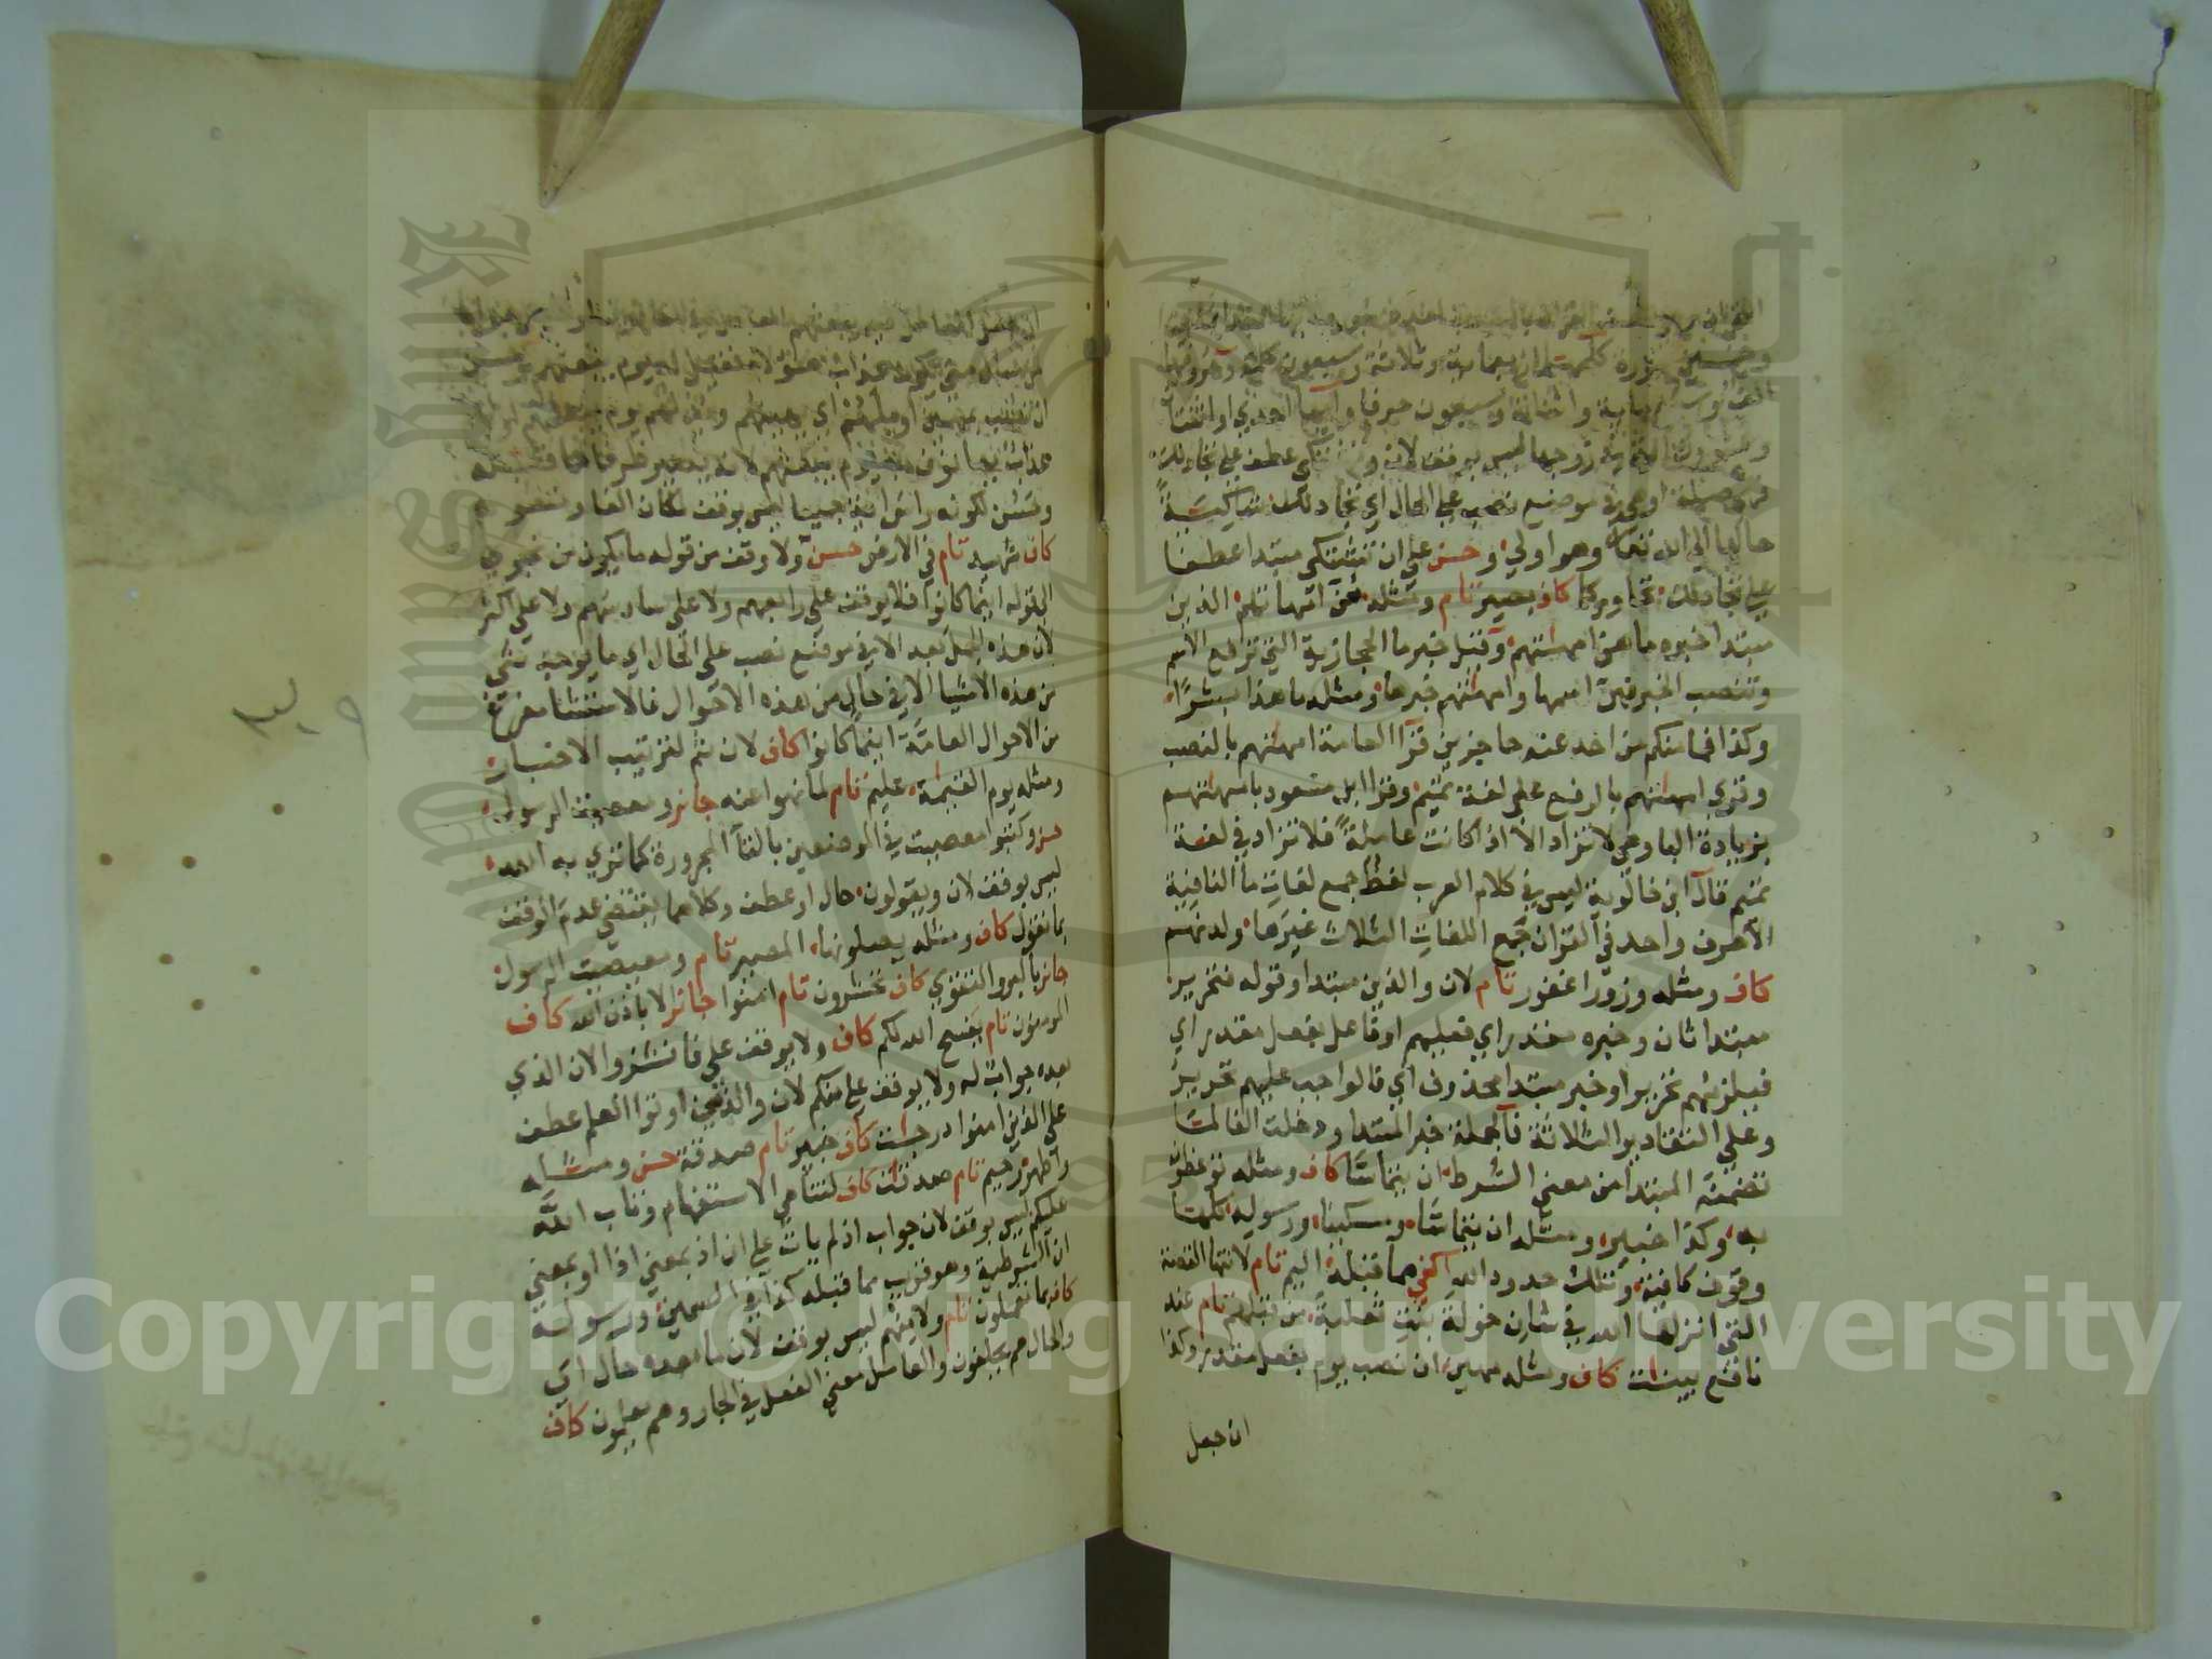 وخمسين سورة كلمها اربعماية وثلاثة وسبعون كلمة وحروفها
الف وسبعماية واثنان وسبعون حرفا وآيها احدي او اثنتا
وعشرون آية في زوجها ليس بوقف لان وتشتكي عطف على تجادلك
فهي صلة او هي في موضع نصب على الحال اي تجادلك شاكية
حالها الي الله تعالى وهو اولي وحسن على ان تشتكي مبتدا عطفا
على تجادلك تحاوركما كاف بصير تام ومثله هن امهاتهم الذين
مبتدا خبره ما هن امهاتهم وقيل خبر ما الحجازية التي ترفع الاسم
وتنصب الخبر فهن اسمها وامهاتهم خبرها ومثله ما هذا بشرا
وكذا فما منكم من احد عنه حاجزين قرا العامة امهاتهم بالنصب
وقري امهاتهم بالرفع على لغة تميم وقرا ابن مسعود بامهاتهم
بزيادة البا وهي لا تزاد الا اذا كانت عاملة فلا تزاد في لغة
تميم قال ابن خالويه ليس في كلام العرب لفظ جمع لغات ما النافية
الا حرف واحد في القرآن جمع اللغات الثلاث غيرها ولدنهم
كاف ومثله وزورا غفور تام لان والذين مبتدا وقوله فتحرير
مبتدا ثان وخبره مقدر اي فعليهم او فاعل بفعل مقدر اي
فيلزمهم تحرير او خبر مبتدا محذوف اي فالواجب عليهم تحرير
وعلى التقادير الثلاثة فالجملة خبر المبتدا ودخلت الفا لما
تضمنه المبتدا من معني الشرط ان يتماسا كاف ومثله توعظون
به وكذا خبير ومثله ان يتماسا ومسكينا ورسوله كلها
وقوف كافية وتلك حدود الله اكفي مما قبله اليم تام لانتها القصة
التي انزلها الله في شان خولة بنت ثعلبة من قبلهم تام عند
نافع بينات كاف ومثله مهين ان نصب يوم بفعل مقدر وكذا
ان جعل
عذاب يهانون به يوم يبعثهم لانه يصير ظرفا لما قبله
ومن لكونه راس آية جميعا ليس بوقف لمكان الفا ونسوه
كاف شهيد تام في الارض حسن ولا وقف من قوله ما يكون من نجوي
الى قوله اينما كانوا فلا يوقف على رابعهم ولا على سادسهم ولا على اكثر
لان هذه الجمل بعد الا في موضع نصب على الحال اي ما يوجد شي
من هذه الاشيا الا في حال من هذه الاحوال فالاستثنا مفرغ
من الاحوال العامة اينما كانوا كاف لان ثم لترتيب الاخبار
ومثله يوم القيمة عليم تام لما نهوا عنه جائز ومعصيت الرسول
حسن وكتبوا معصيت في الموضعين بالتآ المجرورة كما تري به الله
ليس بوقف لان ويقولون حال او عطف وكلاهما يقتضي عدم الوقف
بما نقول كاف ومثله يصلونها المصير تام ومعصيت الرسول
جائز بالبر والتقوي كاف تحشرون تام امنوا جائز الا باذن الله كاف
المومنون تام يفسح الله لكم كاف ولا يوقف على فانشزوا لان الذي
بعده جواب له ولا يوقف على منكم لان والذين اوتوا العلم عطف
على الذين امنوا درجات كاف خبير تام صدقة حسن ومثله
واطهر رحيم تام صدقات كاف لتناهي الاستفهام وتاب الله
عليكم ليس بوقف لان جواب اذ لم يات على ان اذ بمعني اذا او بمعني
ان الشرطية وهو قريب مما قبله كذا في السمين ورسوله
كاف بما تعملون تام ولا منهم ليس بوقف لان ما بعده حال اي
والحال هم يحلفون والعامل معني الفعل في الجار وهم يعلمون كاف
King Saud University
Copyright © King Saud University
1957